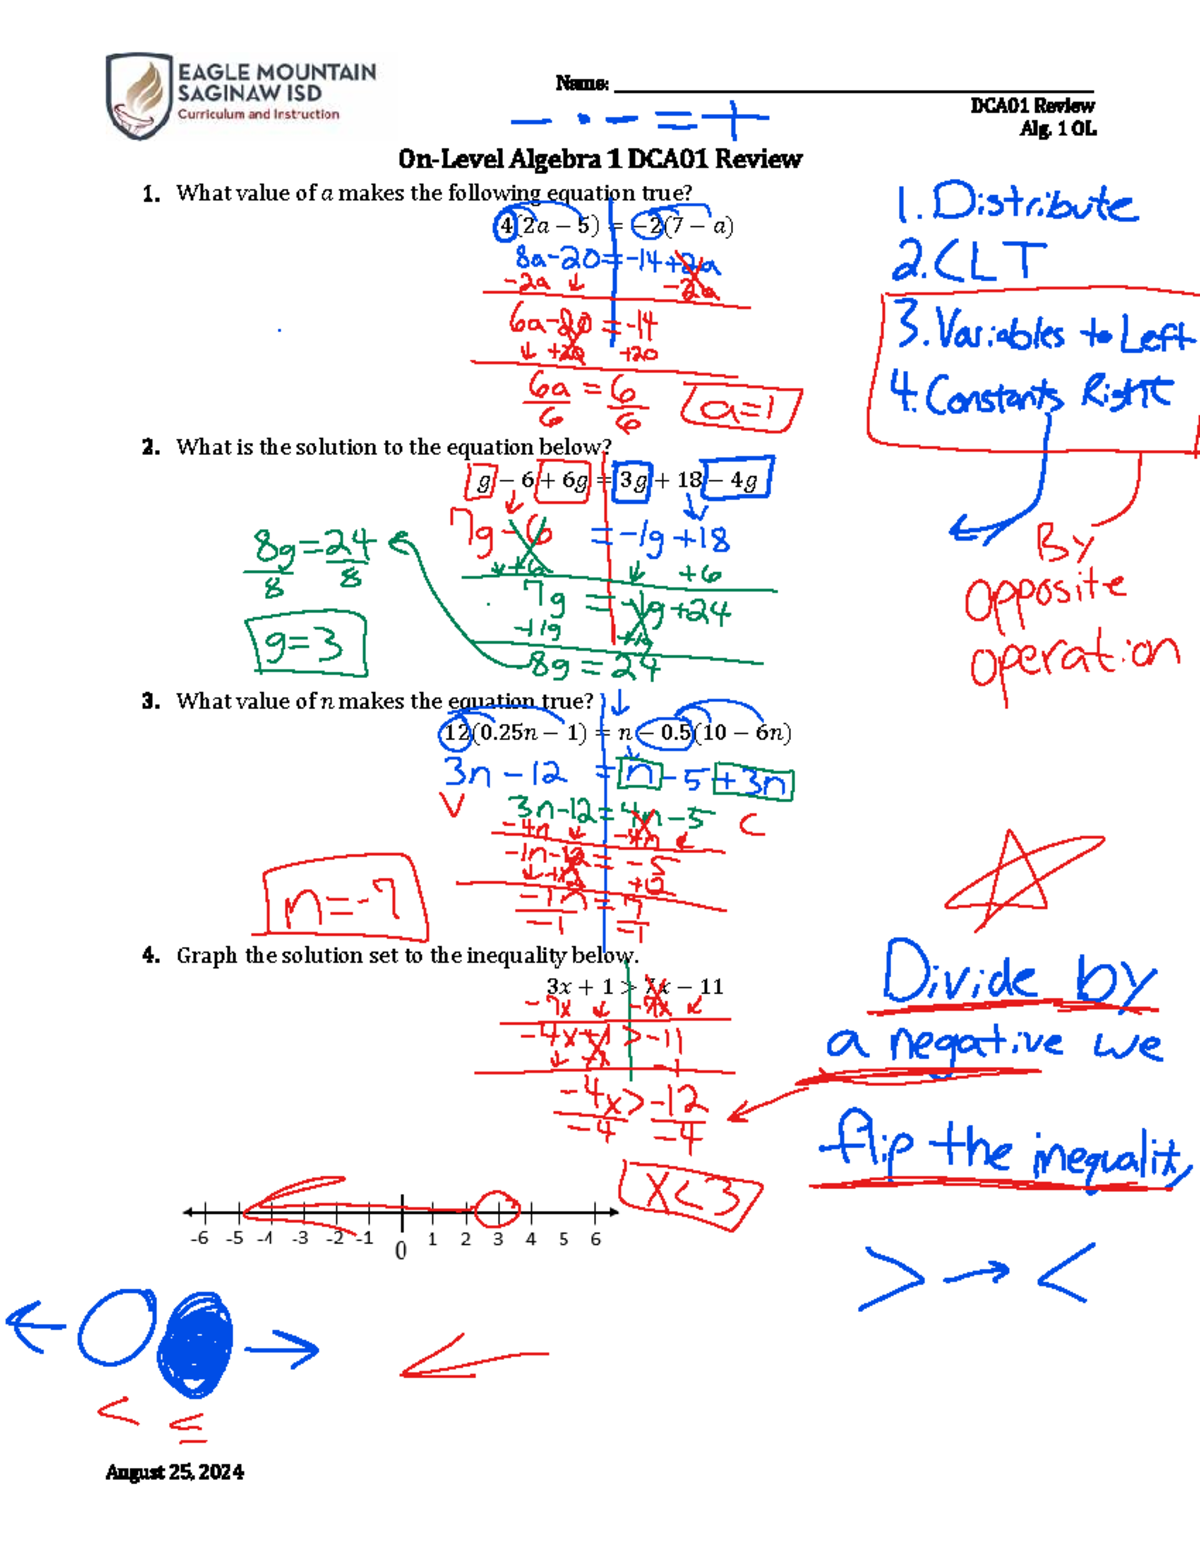 EAGLE MOUNTAIN
SAGINAW ISD
Curriculum and Instruction
Name:
DCA01 Review
Alg. 1 OL
− · − = +
On-Level Algebra 1 DCA01 Review
1. What value of a makes the following equation true?
4(2a − 5) = −2(7 − a)
8a-20=-14+2a
-2a ↓ -2a
6a-20=-14
↓ +20 +20
6a = 6
6 6
a=1
1. Distribute
2. CLT
3. Variables to Left
4. Constants Right
By
opposite
operation
2. What is the solution to the equation below?
g − 6 + 6g = 3g + 18 − 4g
7g-6 = -1g+18
↓ +6 ↓ +6
7g = -1g+24
+1g +1g
8g = 24
8g=24
8 8
g=3
3. What value of n makes the equation true?
12(0.25n − 1) = n − 0.5(10 − 6n)
3n-12 = n-5+3n
V 3n-12=4n-5 C
-4n ↓ -4n ↓
-1n-12 = -5
↓ +12 +12
-1n = 7
-1 -1
n=-7
4. Graph the solution set to the inequality below.
3x + 1 > 7x − 11
-7x ↓ -7x ↓
-4x+1 > -11
↓ -1 -1
-4x > -12
-4 -4
x<3
Divide by
a negative we
flip the inequality
> → <
-6 -5 -4 -3 -2 -1 0 1 2 3 4 5 6
← →
< ≤
August 25, 2024